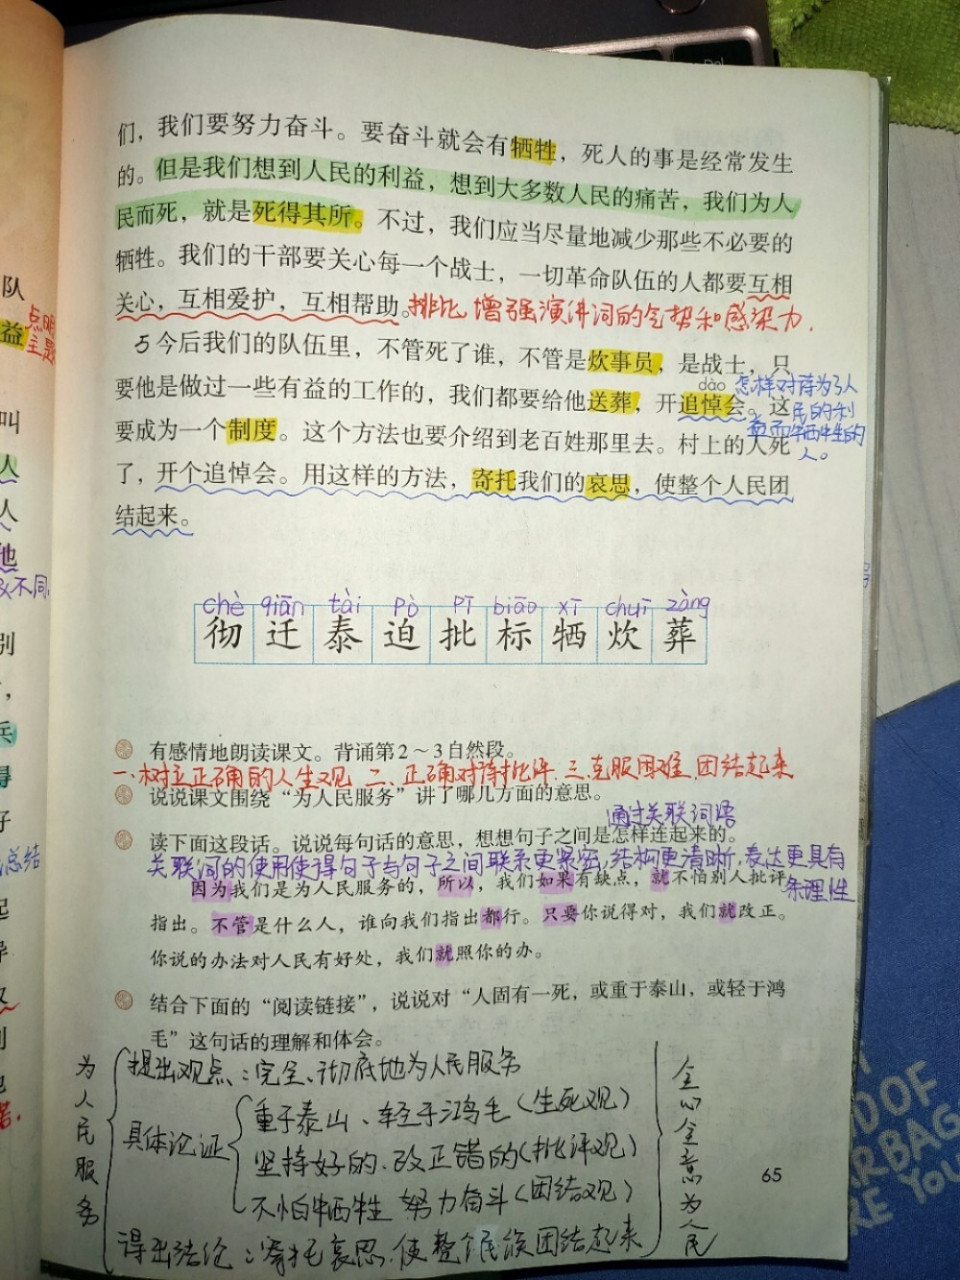 们，我们要努力奋斗。要奋斗就会有牺牲，死人的事是经常发生
的。但是我们想到人民的利益，想到大多数人民的痛苦，我们为人
民而死，就是死得其所。不过，我们应当尽量地减少那些不必要的
牺牲。我们的干部要关心每一个战士，一切革命队伍的人都要互相
关心，互相爱护，互相帮助。排比，增强演讲词的气势和感染力.
5今后我们的队伍里，不管死了谁，不管是炊事员，是战士，只
dào 怎样对待为了人
要他是做过一些有益的工作的，我们都要给他送葬，开追悼会。这
民的利
益而牺牲的
人。
要成为一个制度。这个方法也要介绍到老百姓那里去。村上的人死
了，开个追悼会。用这样的方法，寄托我们的哀思，使整个人民团
结起来。
chè qiān tài pò pī biāo xī chuī zàng
彻 迁 泰 迫 批 标 牺 炊 葬
有感情地朗读课文。背诵第2～3自然段。
一.树立正确的人生观 二、正确对待批评 三.克服困难 团结起来
说说课文围绕“为人民服务”讲了哪几方面的意思。
通过关联词语
读下面这段话。说说每句话的意思，想想句子之间是怎样连起来的。
关联词的使用使得句子与句子之间联系更紧密,结构更清晰,表达更具有
条理性
因为我们是为人民服务的，所以，我们如果有缺点，就不怕别人批评
指出。不管是什么人，谁向我们指出都行。只要你说得对，我们就改正。
你说的办法对人民有好处，我们就照你的办。
结合下面的“阅读链接”，说说对“人固有一死，或重于泰山，或轻于鸿
毛”这句话的理解和体会。
为人民服务
提出观点：完全、彻底地为人民服务
具体论证
重于泰山、轻于鸿毛（生死观）
坚持好的.改正错的（批评观）
不怕牺牲 努力奋斗（团结观）
得出结论：寄托哀思.使整个民族团结起来
全心全意为人民
65
队
点明
益
主题
叫
人
人
他
义不同.
别
兵
得
好
总结
起